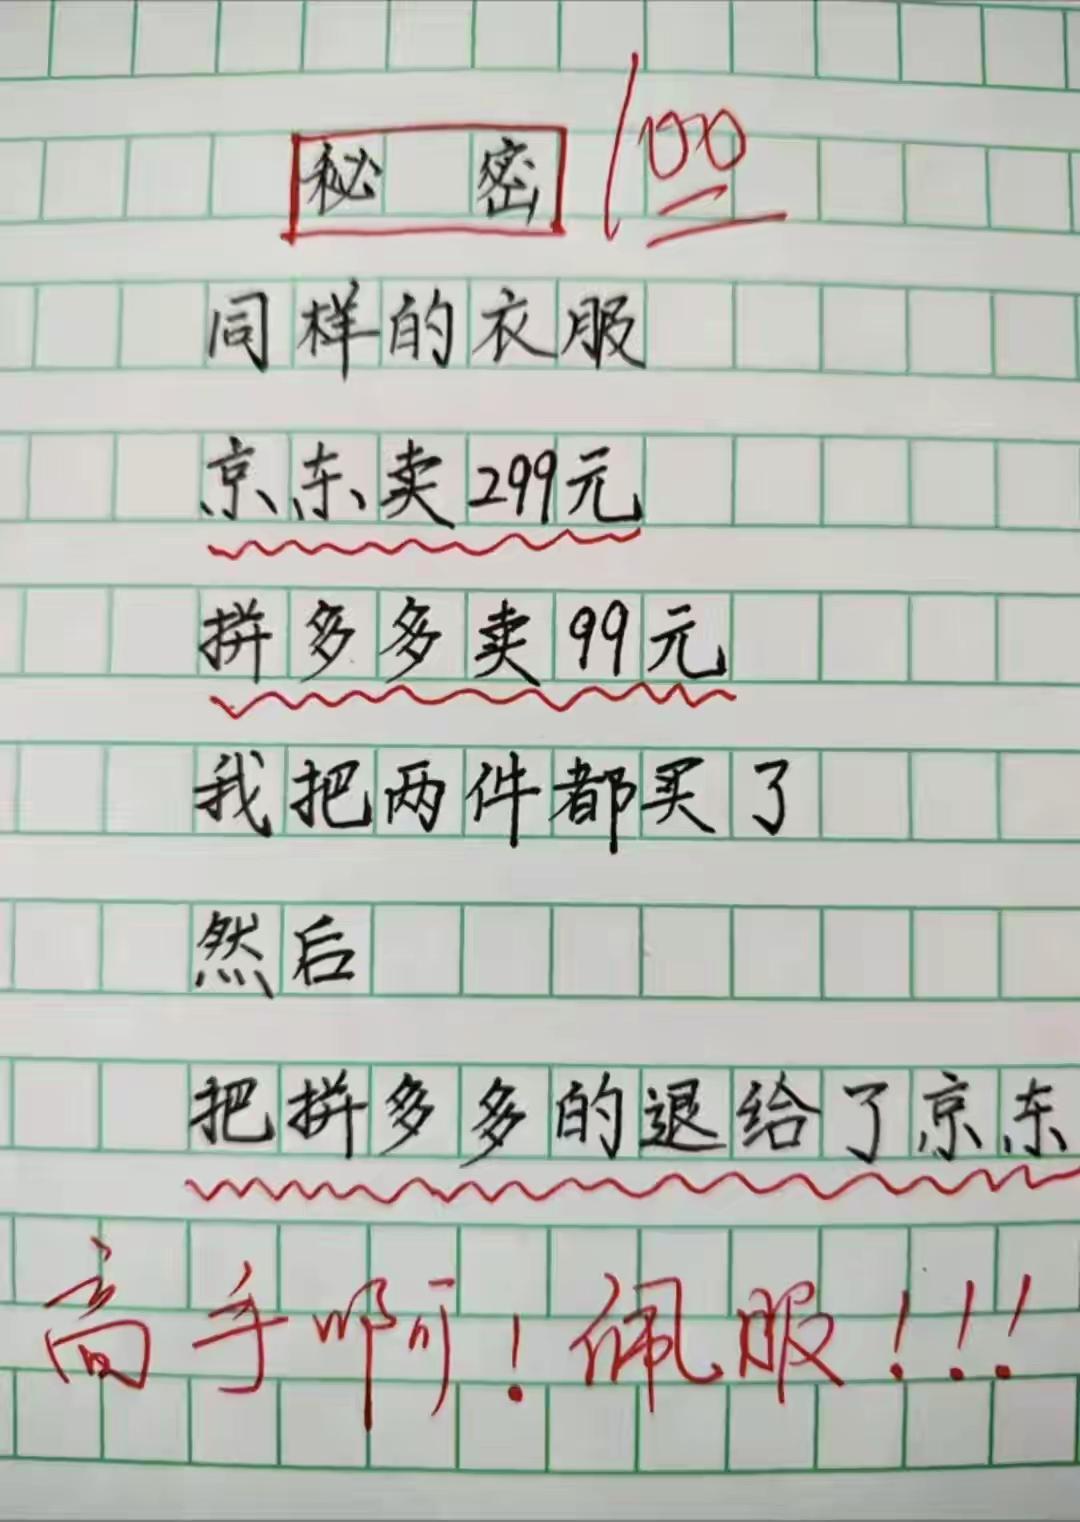 秘密 100
同样的衣服
京东卖299元
拼多多卖99元
我把两件都买了
然后
把拼多多的退给了京东
高手啊！佩服！！！